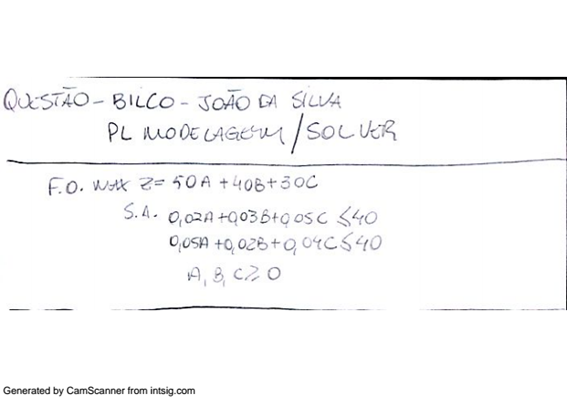 QUESTÃO - BILCO - JOÃO DA SILVA
PL MODELAGEM / SOLVER
F.O. MAX Z = 50A + 40B + 30C
S.A. 0,02A + 0,03B + 0,05C ≤ 40
0,05A + 0,02B + 0,04C ≤ 40
A, B, C ≥ 0
Generated by CamScanner from intsig.com